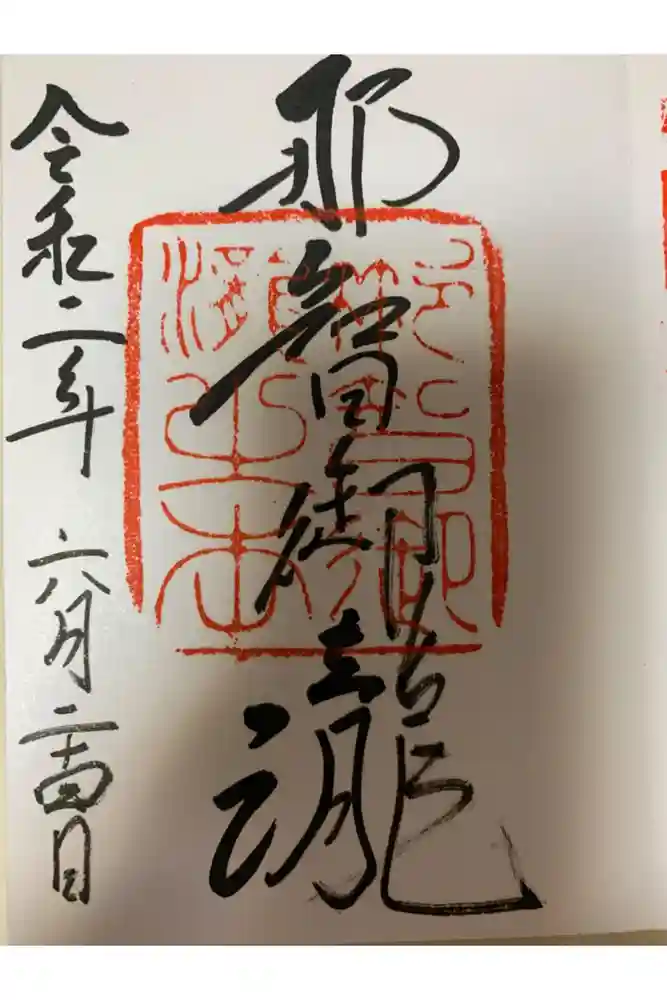 那智御瀧
令和二年 六月二十四日